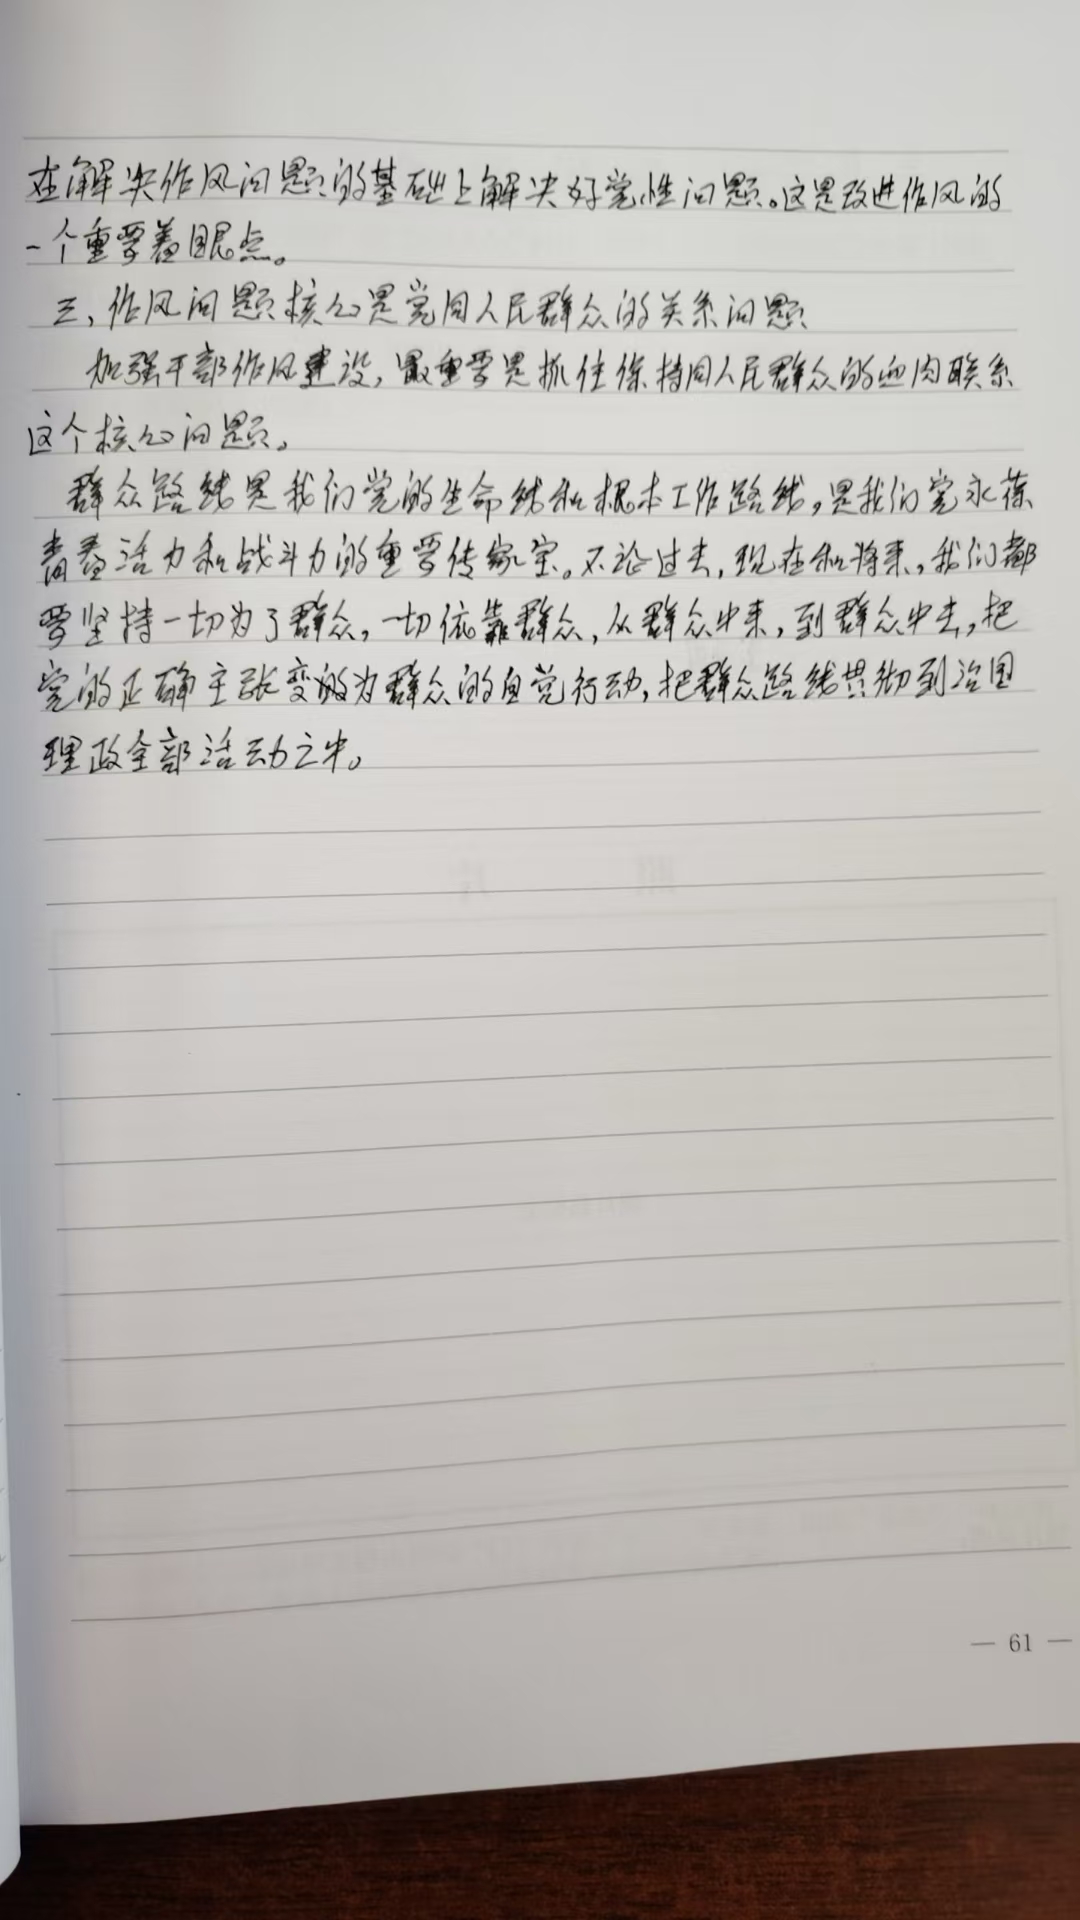 在解决作风问题的基础上解决好党性问题。这是改进作风的
一个重要着眼点。
三、作风问题核心是党同人民群众的关系问题
加强干部作风建设，最重要是抓住保持同人民群众的血肉联系
这个核心问题。
群众路线是我们党的生命线和根本工作路线，是我们党永葆
青春活力和战斗力的重要传家宝。不论过去，现在和将来，我们都
要坚持一切为了群众，一切依靠群众，从群众中来，到群众中去，把
党的正确主张变为群众的自觉行动，把群众路线贯彻到治国
理政全部活动之中。
— 61 —